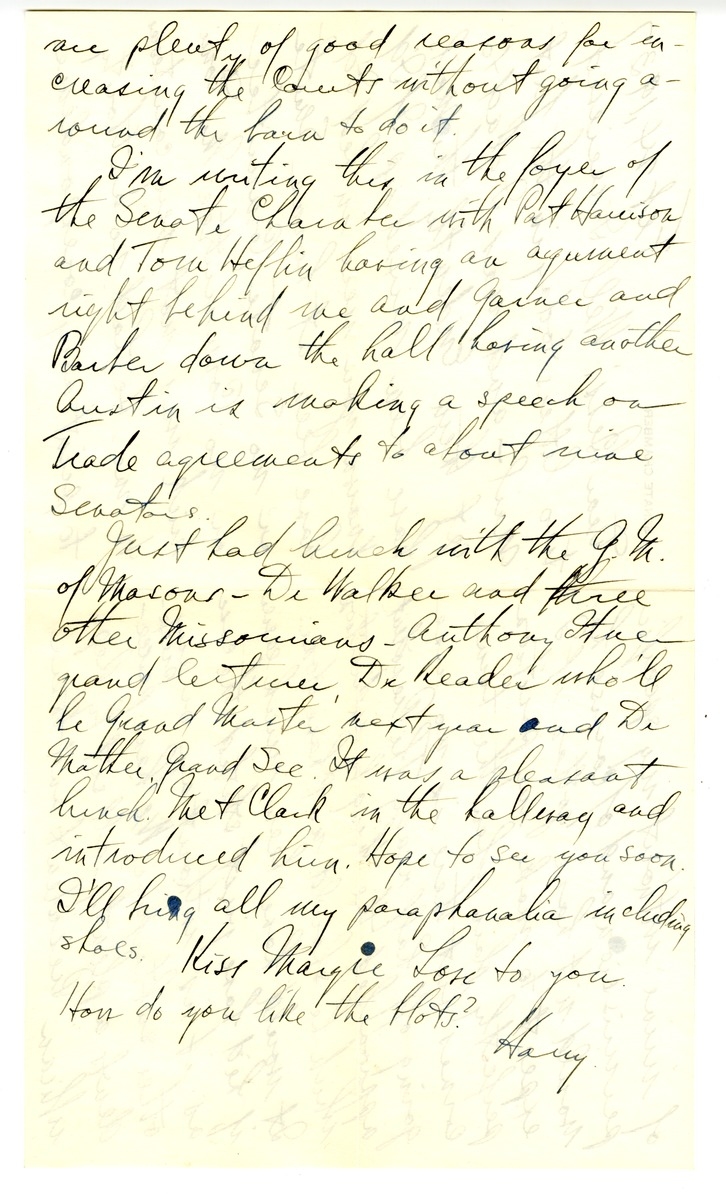 are plenty of good reasons for in-
creasing the Courts without going a-
round the barn to do it.
I'm writing this in the foyer of
the Senate Chamber with Pat Harrison
and Tom Heflin having an agument
right behind me and Garner and
down the hall having another
Austin is making a speech on
Trade agreements to about nine
Senators.
Just had lunch with the G.M.
of Masons - Dr Walker and three
other Missourians - Anthony Ittner
grand lecturer, Dr Reader who'll
be Grand Master next year and Dr
Mather, Grand Sec. It was a pleasant
lunch. Met Clark in the hallway and
introduced him. Hope to see you soon.
I'll bring all my paraphanalia including
shoes. Kiss Margie Love to you.
How do you like the blots?
Harry.